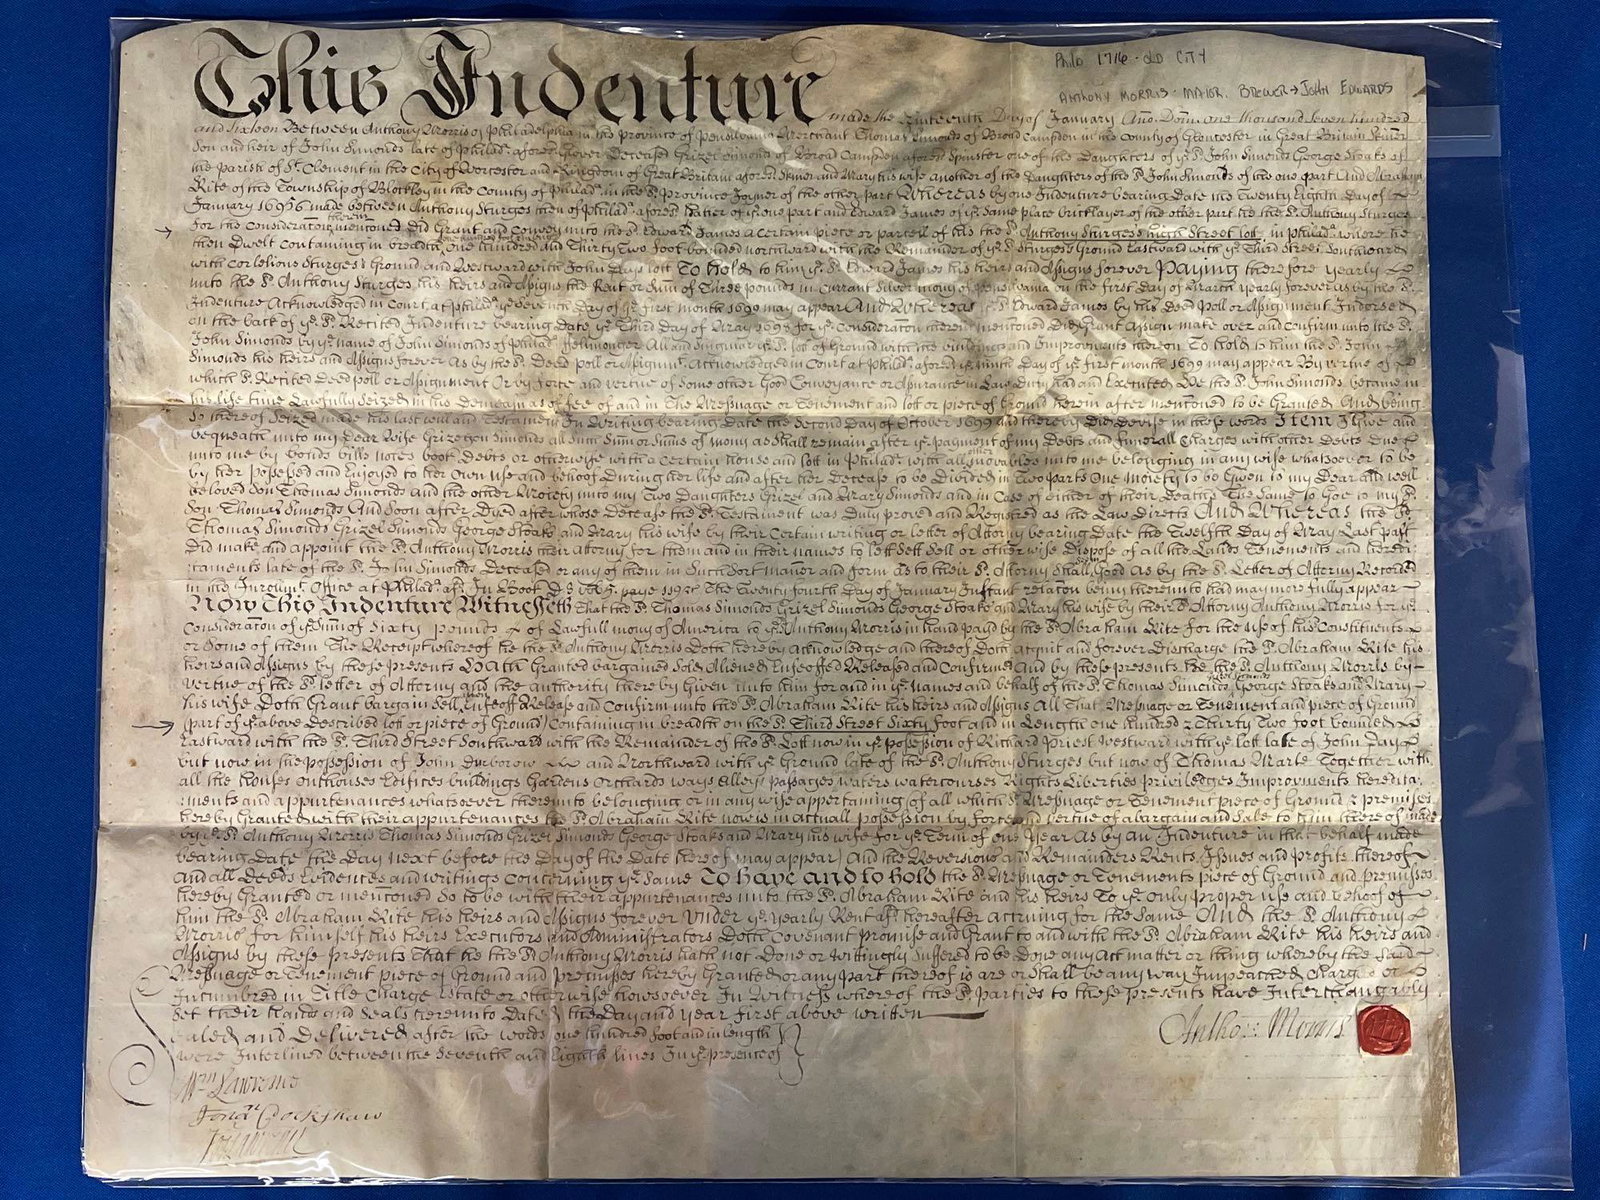 Phila 1716 - OLD CITY
ANTHONY MORRIS - MAYOR. BREWER → JOHN EDWARDS
This Indenture made the Day of January Ano. Dom. one thousand Seven hundred
and Sixteen Between Anthony Morris of Philadelphia in the province of Pensilvania Merchant Thomas Simonds of Broad Campden in the County of Glocester in Great Britain
Son and heir of John Simonds late of Philada. aforesd. Deceased Grizel Simonds of Broad Campden aforesd. Spinster one of the Daughters of ye. sd. John Simonds George Stoaks of
the parish of St. Clement in the City of Worcester and Kingdom of Great Britain aforesd. and Mary his wife another of the Daughters of the sd. John Simonds of the one part And Abraham
Rite of the Township of Blockley in the County of Philada. in the sd. province Joyner of the other part Whereas by one Indenture bearing Date the Twenty Eighth Day of
January 1695/6 made between Anthony Sturges then of Philada. aforesd. of ye. one part and Edward James of ye. same place bricklayer of the other part he the sd. Anthony Sturges
for the consideration therein mentioned Did Grant and Convey unto the sd. Edward James a Certain piece or parcell of his the sd. Anthony Sturges's high Street lott in Philada. where he
then Dwelt containing in breadth one hundred and Thirty Two foot bounded northward with the Remainder of ye. sd. Sturges's Ground Eastward with ye. Third Street Southward
with Cornelious Sturges's Ground and Westward with John Days lott To hold to him ye. sd. Edward James his heirs and Assigns forever Paying therefore yearly
unto the sd. Anthony Sturges his heirs and Assigns the Rent or Sum of Three pounds in Currant Silver mony of Pensilvania on the first Day of March yearly forever as by the sd.
Indenture Acknowledged in Court at Philada. ye. Seventh day of ye. first month may appear And Whereas ye. sd. Edward James by his Deed Poll or Assignment Indorsed
on the back of ye. sd. Recited Indenture bearing Date ye. Third Day of May 1698 for ye. Consideration therein mentioned Did Grant Assign make over and Confirm unto the sd.
John Simonds by ye. name of John Simonds of Philada. ffellmonger All and Singular ye. sd. lott of Ground with the buildings and Improvements thereon To hold to him the sd. John
Simonds his heirs and Assigns forever As by the sd. Deed poll or Assignmt. Acknowledged in Court at Philada. aforesd. ye. ninth Day of ye. first month 1699 may appear By vertue of
which sd. Recited Deed poll or Assignment Or by force and vertue of Some other Good Conveyance or Assurance in Law Duly had and Executed He the sd. John Simonds became in
his life time Lawfully Seized in his demeasn as of fee of and in The Messuage or Tenement and lott or piece of Ground herein after mentioned to be Granted And being
So thereof Seized made his last will and Testament In Writing bearing Date the Second Day of October 1699 and thereby Did Devise in these words Item I Give and
bequeath unto my Dear Wife Grizegon Simonds all Sum or Sums of mony as shall remain after ye. payment of my Debts and funerall Charges with other Debts Due
unto me by bonds bills notes book Debts or otherwise with a Certain house and lott in Philada. with all other movables unto me belonging in any wise whatsoever to be
by her possessed and Enjoyed to her own use and behoof During her life and after her Decease to be Divided in Two parts One moiety to be Given to my Dear and well
beloved Son Thomas Simonds And the other Moiety unto my Two Daughters Grizel and Mary Simonds and in Case of either of their Deaths The Same to Goe to my sd.
Son Thomas Simonds And Soon after Dyed after whose Decease the sd. Testament was Duly proved and Registred as the Law Directs And Whereas the sd.
Thomas Simonds Grizel Simonds George Stoaks and Mary his wife by their Certain writing or letter of Attorny bearing Date the Twelfth Day of May Last past
Did make and appoint the sd. Anthony Morris their Attorny for them and in their names to lett Sett Sell or otherwise Dispose of all the Lands Tenements and heredi
:taments late of the sd. John Simonds Deceased or any of them in Such Sort maner and form as to their sd. Attorny Shall Seem Good As by the sd. Letter of Attorny Recorded
in the Inrollmt. Office at Philada. The Twenty fourth Day of January Instant relation being thereunto had may more fully appear
Now This Indenture Witnesseth That the sd. Thomas Simonds Grizel Simonds George Stoaks and Mary his wife by their sd. Attorny Anthony Morris for ye.
Consideration of ye. Summ of Sixty pounds of Lawfull mony of America to ye. sd. Anthony Morris in hand paid by the sd. Abraham Rite for the use of his Constituents
or Some of them The Receipt whereof he the sd. Anthony Morris Doth hereby acknowledge and thereof Doth acquit and forever Discharge the sd. Abraham Rite his
heirs and Assigns by these Presents Hath Granted bargained Sold Aliened Enfeoffed Released and Confirmed And by these presents he the sd. Anthony Morris by
vertue of the sd. letter of Attorny and the authority thereby Given unto him for and in ye. names and behalf of the sd. Thomas Simonds Grizel Simonds George Stoaks and Mary
his wife Doth Grant bargain Sell Alien Enfeoff Release and Confirm unto the sd. Abraham Rite his heirs and Assigns All That Messuage or Tenement and piece of Ground
(part of ye. above Described lott or piece of Ground) Containing in breadth on the sd. Third Street Sixty foot and in Length One hundred & Thirty Two foot bounded
Eastward with the sd. Third Street Southward with the Remainder of the sd. Lott now in ye. possession of Richard Priest Westward with ye. lott late of John Day
but now in the possession of John Durborow and Northward with ye. Ground late of the sd. Anthony Sturges but now of Thomas Marle Together with
all the houses outhouses Edifices buildings Gardens Orchards ways Alleys passages waters watercourses Rights Liberties Priviledges Improvments heredita:
:ments and appurtenances whatsoever thereunto belonging or in any wise appertaining of all which sd. Messuage or Tenement piece of Ground & premises
hereby Granted with their appurtenances the sd. Abraham Rite now is in actuall possession by force and vertue of a bargain and Sale to him thereof made
by ye. sd. Anthony Morris Thomas Simonds Grizel Simonds George Stoaks and Mary his wife for ye. Term of one Year As by an Indenture in that behalf made
bearing Date the Day next before the Day of the Date hereof may appear) And the Reversions and Remainders Rents Issues and profits thereof
and all Deeds Evidences and writings Concerning ye. Same To have and to hold the sd. Messuage or Tenements piece of Ground and premisses
hereby Granted or mentioned So to be with their appurtenances unto the sd. Abraham Rite and his heirs To ye. only Proper use and behoof of
him the sd. Abraham Rite his heirs and Assigns forever Under ye. yearly Rent hereafter accruing for the Same And the sd. Anthony
Morris for himself his heirs Executors and Administrators Doth Covenant Promise and Grant to and with the sd. Abraham Rite his heirs and
Assigns by these Presents That he the sd. Anthony Morris hath not Done or Wittingly Suffered to be Done any Act matter or thing whereby the said
Messuage or Tenement piece of Ground and Premisses hereby Granted or any part thereof is are or shall be any way Impeached Charged or
Incumbred in Title Charge Estate or otherwise howsoever In Witness whereof the sd. Parties to these presents have Interchangably
Set their hands and Seals hereunto Dated the Day and year first above written
Sealed and Delivered after the words one hundred foot and in length
were Interlined between the Seventh and Eighth lines In ye. presence of
Anthony Morris
Wm Lawrence